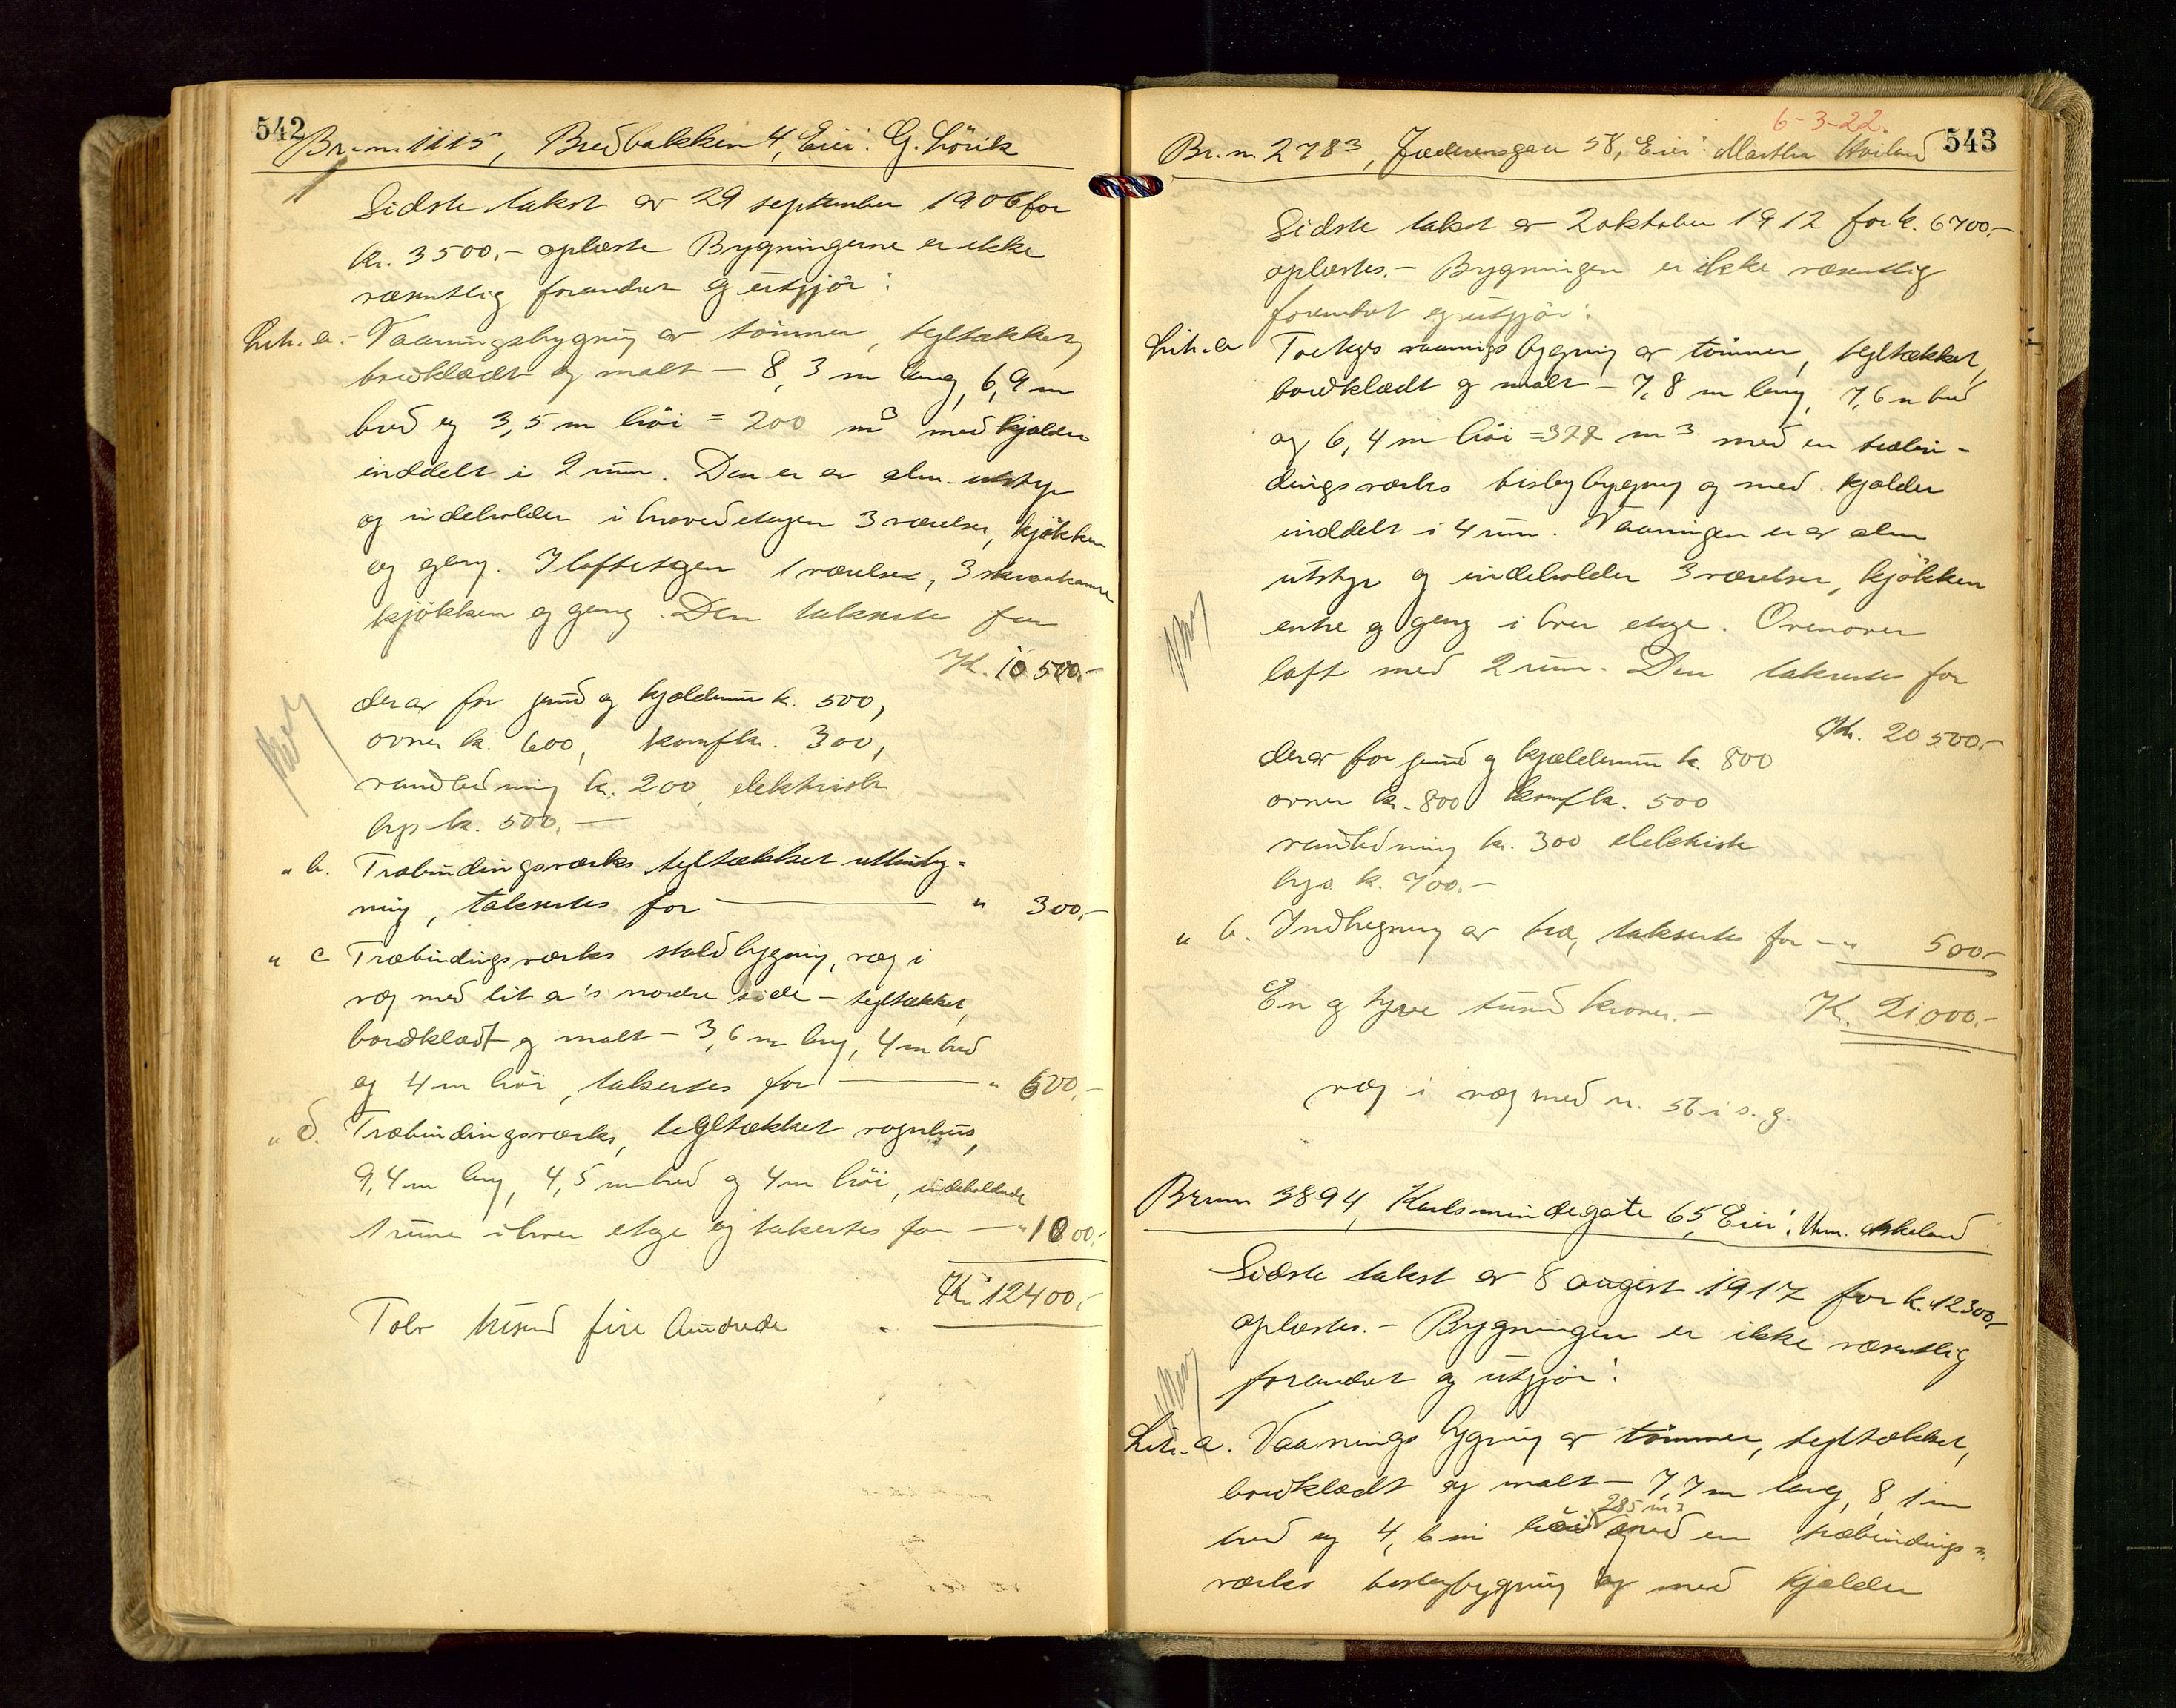 542
Br.n. 1115, Bredbakken 4, Eier: G. Lörik
Sidste takst av 29 september 1906 for
kr. 3500,- oplæste Bygningerne er ikke
væsentlig forandret og utgjör:
Lit. a. - Vaaningsbygning av tömmer, tegltækket,
bordklædt og malt - 8,3 m lang, 6,9 m
bred og 3,5 m höi = 200 m³ med kjælder
inddelt i 2 rum. Den er av alm. utstyr
og indeholder i hovedetagen 3 værelser, kjökken
og gang. I loftetagen 1 værelse, 3 skraakamre
kjökken og gang. Den takseres for
Kr. 10500,-
derav for grund og kjælderrum kr. 500,
ovner kr. 600, komf kr. 300,
vandledning kr. 200, elektrisk
lys kr. 500,-
" b. Træbindingsværks tegltækket uthusbyg-
ning, takseres for " 300,-
" c Træbindingsværks staldbygning, væg i
væg med lit a's nordre side - tegltækket,
bordklædt og malt - 3,6 m lang, 4 m bred
og 4 m höi, takseres for " 600,-
" d. Træbindingsværks, tegltækket vognhus,
9,4 m lang, 4,5 m bred og 4 m höi, indeholdende
1 rum i hver etage og takseres for - " 1000,-
Kr. 12400,-
Tolv tusend fire hundrede
6-3-22.
543
Br.n. 2783, Jæderensgate 58, Eier: Martha Hviland
Sidste takst av 2 oktober 1912 for kr. 6700,-
oplæstes. - Bygningen er ikke væsentlig
forandret og utgjör:
Lit. a Toetages vaaningsbygning av tömmer, tegltækket,
bordklædt og malt - 7,8 m lang, 7,6 m bred
og 6,4 m höi = 377 m³ med en træbin-
dingsværks bislagbygning og med kjælder
inddelt i 4 rum. Vaaningen er av alm
utstyr og indeholder 3 værelser, kjökken
entre og gang i hver etage. Ovenover
loft med 2 rum. Den takseres for
Kr. 20500,-
derav for grund og kjælderrum kr. 800
ovner kr. 800 komf kr. 500
vandledning kr. 300 elektrisk
lys kr. 700,-
" b. Indhegning av træ, takseres for - " 500,-
En og tyve tusend kroner. - Kr. 21.000,-
væg i væg med n. 56 i s. g.
Br.n. 3894, Karlsmindegate 65, Eier: Askeland
Sidste takst av 8 august 1917 for kr. 12300,-
oplæstes. - Bygningen er ikke væsentlig
forandret og utgjör:
Lit. a. Vaaningsbygning av tömmer, tegltækket,
bordklædt og malt - 7,7 m lang, 8,1 m
285 m³
bred og 4,6 m höi og med en træbindings-
værks bislagbygning og med kjælder